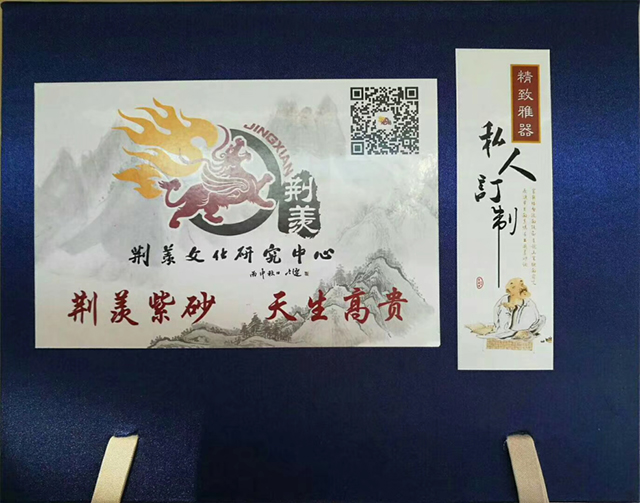 JINGXIAN
荆羡
荆羡文化研究中心
荆羡紫砂 天生高贵
精致雅器
私人訂制